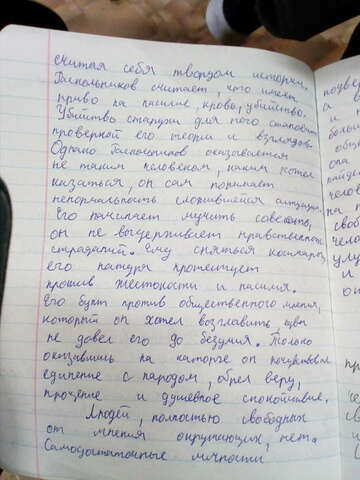 считая себя творцом истории.
Раскольников считает, что имеет
право на насилие, кровь, убийство.
Убийство старухи для него становит
проверкой его теории и взглядов.
Однако Раскольников оказывается
не таким человеком, каким хотел
казаться, он сам понимает
ненормальность сложившейся ситуации.
Его начинает мучить совесть,
он не выдерживает нравственных
страданий. Ему сняться кошмары,
его натура протестует
против жестокости и насилия.
Его бунт против общественного мнения,
который он хотел возглавить,
не довел его до безумия. Только
оказавшись на каторге он почувствовал
единение с народом, обрел веру,
прощение и душевное спокойствие.
Людей, полностью свободных
от мнения окружающих, нет.
Самодостаточные личности
подвер
а
и
боль
общ
она
найде
чело
на
сво
чело
улу
и
он
пр